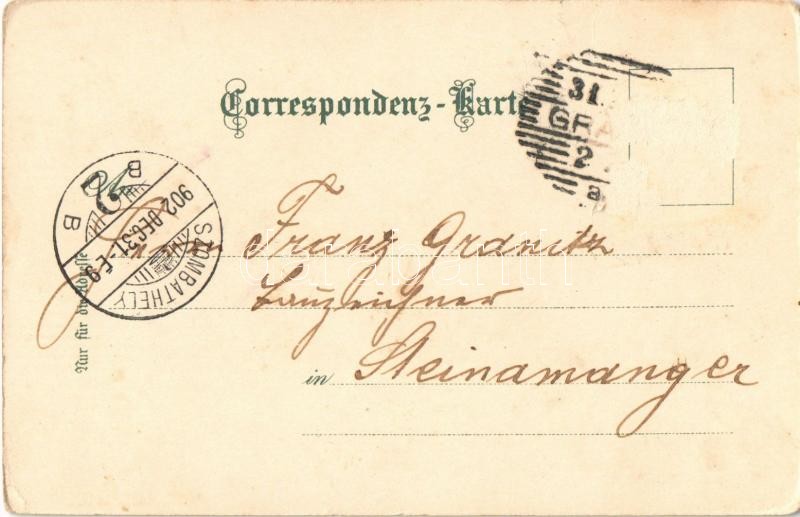 Correspondenz-Karte
31
GRA
2
a
SZOMBATHELY
902 DEC 31 E9
B
2
B
Nur für die Adresse
An
Franz Granitz
Bauzeichner
in Steinamanger